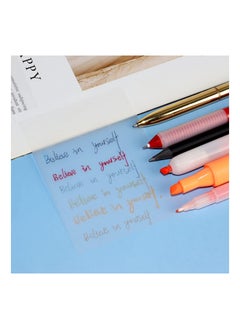 HAPPY
Believe in yourself
Believe in yourself
Believe in yourself
Believe in yourself
Believe in yourself
Believe in yourself